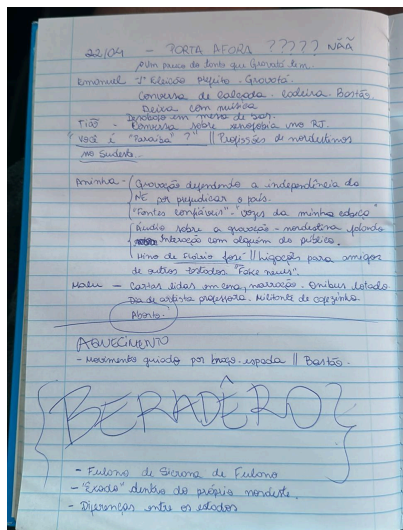 22/04 - PORTA AFORA ????? NÃÃ
Um pouco do tanto que Gravatá tem.
Emanuel 1ª Eleição prefeito - Gravatá.
Conversa de calçada. Cadeira. Bastão.
Deixa com música
Deboche em mesa de bar.
Tião - Conversa sobre xenofobia no RJ.
"Você é "Paraíba"?" || Profissões de nordestinos
no Sudeste.
Aninha - Gravação defendendo a independência do
NE por prejudicar o país.
"Fontes confiáveis" - "vozes da minha cabeça"
Áudio sobre a gravação - nordestina falando
Interação com alguém do público.
Hino de Flávio José || Ligações para amigos
de outros estados. "Fake news".
Malu - Cartas lidas em cena, narração. Ônibus lotado
Dia de artista professora. Militante de cafezinho.
Aborto.
AQUECIMENTO
- Movimento guiado por braço-espada || Bastão.
{BERADÊRO}
- Fulano de Sicrana de Fulano
- "Êxodo" dentro do próprio nordeste.
- Diferenças entre os estados